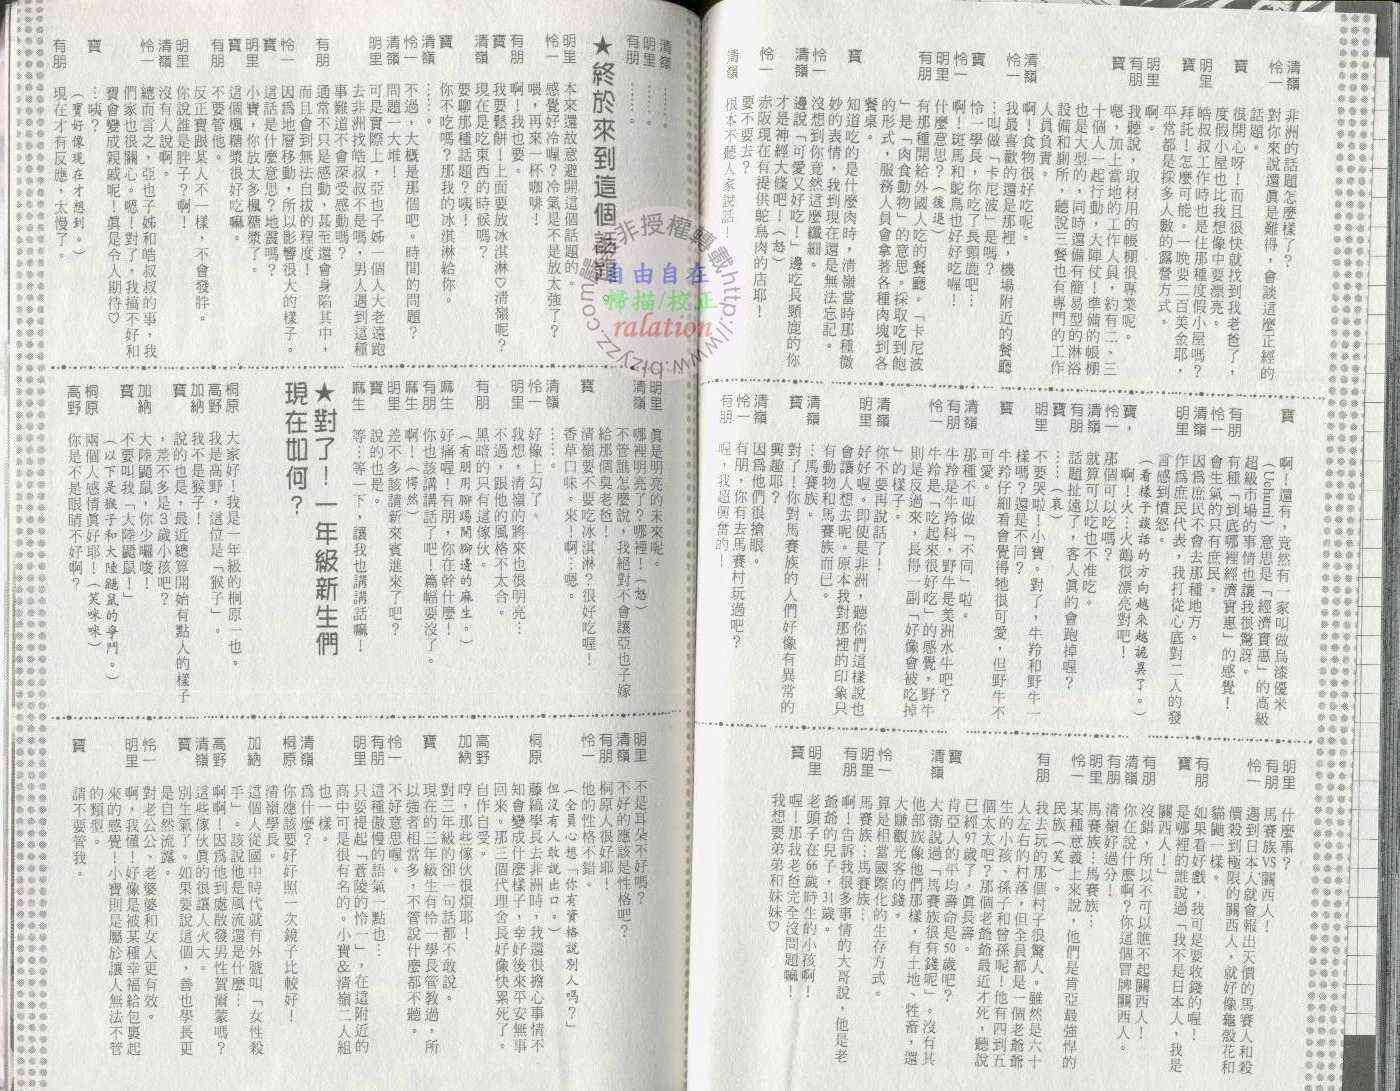 清嶺　非洲的話題怎麼樣了？
怜一　對你來說還真是難得，會談這麼正經的
話題。
寶　很開心呀！而且很快就找到我老爸了，
度假小屋也比我想像中要漂亮。
明里　皓叔叔工作時也是住那種度假小屋嗎？
寶　拜託！怎麼可能。一晚要二百美金耶，
平常都是採多人數的露營方式。
明里　啊。
有朋　我聽說，取材用的帳棚很專業呢。
寶　嗯，加上當地的工作人員，約有二、三
十個人一起行動，大陣仗！準備的帳棚
也是大型的，同時還備有簡易型的淋浴
設備和廁所，聽說三餐也有專門的工作
人員負責。
清嶺　啊！食物好吃呢。
怜一　我最喜歡的還是那裡，機場附近的餐廳
…叫做「卡尼波」是嗎？
寶　怜一學長，你吃了長頸鹿吧…
怜一　啊！斑馬和鴕鳥也好好吃喔！
明里　什麼意思？（後退）
有朋　有那種開給外國人吃的餐廳。「卡尼波
」是「肉食動物」的意思。採取吃到飽
的形式，服務人員會拿著各種肉塊到各
餐桌。
寶　知道吃的是什麼肉時，清嶺當時那種微
妙的表情，我到現在還是無法忘記。
怜一　沒想到你竟然這麼纖細。
清嶺　邊說「可愛又好吃！」邊吃長頸鹿的你
才是神經大條吧！（怒）
怜一　赤阪現在有提供鴕鳥肉的店耶！
要不要去？
清嶺　根本不聽人家說話！
寶　啊！還有，竟然有一家叫做烏漆優米
（Uchumi）意思是「經濟實惠」的高級
超級市場的事情也讓我很驚訝。
有朋　有種「到底哪裡經濟實惠」的感覺！
怜一　會生氣的只有庶民。
清嶺　因為庶民不會去那種地方。
明里　作為庶民代表，我打從心底對二人的發
言感到憤怒。
（看樣子談話的方向越來越詭異了。）
寶　啊！火…火鶴很漂亮對吧！
怜一　那個可以吃嗎？
清嶺　就算可以吃也不准吃。
有朋　話題扯遠了，客人真的會跑掉喔？
寶　……（哀）
明里　不要哭啦！小寶。對了，牛羚和野牛一
樣嗎？還是不同？
寶　牛羚仔細看會覺得牠很可愛，但野牛不
可愛。
清嶺　那種不叫做「不同」啦。
有朋　牛羚是牛羚科，野牛是美洲水牛吧？
怜一　牛羚是「吃起來很好吃」的感覺，野牛
則是反過來，長得一副「好像會被吃掉
」的樣子。
清嶺　你不要再說話了！
明里　好好喔。即便是非洲，聽你們這樣說也
會讓人想去呢。原本我對那裡的印象只
有動物和馬賽族而已。
清嶺　…馬賽族。
寶　對了！你對馬賽族的人們好像有異常的
興趣耶？
清嶺　因為他們很搶眼。
怜一　有朋，你有去馬賽村玩過吧？
有朋　喔，我超興奮的！
明里　什麼事？
有朋　馬賽族VS關西人！
怜一　遇到日本人就會報出天價的馬賽人和殺
價殺到極限的關西人，就好像龜殼花和
貓鼬一樣。
有朋　如果看好戲，我可是要收錢的喔！
寶　是哪裡的誰說過「我不是日本人，我是
關西人！」
有朋　沒錯，所以不可以瞧不起關西人！
清嶺　你在說什麼啊？你這個冒牌關西人。
有朋　清嶺好過分！
明里　馬賽族…馬賽族…
怜一　某種意義上來說，他們是肯亞最強悍的
民族（笑）。
有朋　我去玩的那個村子很驚人。雖然是六十
人左右的村落，但全員都是一個老爺爺
生的小孩、孫子和曾孫呢！他有四到五
個太太吧？那個老爺爺最近才死，聽說
已經97歲了，真長壽。
寶　肯亞人的平均壽命是50歲吧？
清嶺　大衛說過「馬賽族很有錢呢」。沒有其
他部族像他們那樣，有土地、牲畜，還
大賺觀光客的錢。
怜一　算是相當國際化的生存方式。
明里　馬賽族…馬賽族…
有朋　啊！告訴我很多事情的大哥說，他是老
爺爺的兒子，31歲。
明里　老頭子在66歲時生的小孩啊！
寶　喔！那我老爸完全沒問題嘛！
我想要弟弟和妹妹♡
清嶺　……。
明里　……。
有朋　……。
★終於來到這個話題。
明里　本來還故意避開這個話題的。
怜一　感覺好冷呢？冷氣是不是放太強了？
清嶺　喂，再來一杯咖啡！
有朋　啊！我也要。
寶　我要鬆餅！上面要放冰淇淋♡清嶺呢？
清嶺　現在是吃東西的時候嗎？
要聊那種話題？咦！
寶　你不吃嗎？那我的冰淇淋給你。
清嶺　……
怜一　不過，大概是那個吧。時間的問題？
清嶺　問題一大堆！
明里　可是實際上，亞也子姊一個人大老遠跑
去非洲找皓叔叔不是嗎，男人遇到這種
事難道不會深受感動嗎？
有朋　通常不只是感動，甚至還會身陷其中，
而且會到無法自拔的程度！
怜一　因為地層移動，所以影響很大的樣子。
寶　這話是什麼意思？地震嗎？
明里　小寶，你放太多楓糖漿了。
寶　這個楓糖漿很好吃嘛。
有朋　不要管他。
反正寶跟某人不一樣，不會發胖。
明里　你說誰是胖子？啊！
清嶺　沒有人說啊。
怜一　總而言之，亞也子姊和皓叔叔的事，我
們家也很關心。嗯！對了，我搞不好和
寶會變成親戚呢！真是令人期待♡
寶　…咦？
（寶好像現在才想到。）
有朋　現在才有反應，太慢了。
明里　真是明亮的未來呢。
清嶺　哪裡明亮了？哪裡！（怒）
不管誰怎麼說，我絕對不會讓亞也子嫁
給那個臭老爸！
寶　清嶺要不要吃冰淇淋？很好吃喔！
香草口味。來！啊…
清嶺　…嗯。
怜一　好像上勾了。
明里　我想，清嶺的將來也很明亮…
不過，跟他的風格不太合。
有朋　黑暗的只有這傢伙。
（有朋用腳踢鬧腳邊的麻生。）
麻生　好痛喔！有朋，你在幹什麼！
有朋　你也該講話了吧！篇幅要沒了。
麻生　啊！（愕然）
明里　差不多該請新來賓進來了吧？
寶　說的也是。
麻生　等…等一下，讓我也講講話嘛！
★對了！一年級新生們
現在如何？
桐原　大家好！我是一年級的桐原一也。
高野　我是高野，這位是「猴子」。
加納　我不是猴子！
寶　說的也是，最近總算開始有點人的樣子
，差不多是3歲小孩吧？
加納　大陸鼴鼠，你少囉唆！
寶　不要叫我「大陸鼴鼠！」
（以下是猴子和大陸鼴鼠的爭鬥。）
桐原　兩個人感情真好耶！（笑咪咪）
高野　你是不是眼睛不好啊？
明里　不是耳朵不好嗎？
清嶺　不好的應該是性格吧？
有朋　桐原人很好耶！
怜一　他的性格不錯。
（全員心想「你有資格說別人嗎？」
但沒有人敢說出口。）
桐原　藤縞學長去非洲時，我還很擔心事情不
知會變成什麼樣子，幸好後來平安無事
回來。那三個代理舍長好像快累死了。
高野　自作自受。
加納　哼，那些傢伙很煩耶！
對三年級的卻一句話都不敢說。
寶　現在的三年級生有怜一學長管教過，所
以強者相當多，不管說什麼都不聽。
怜一　不好意思喔。
有朋　這種傲慢的語氣一點也…
明里　只要提起「蒼陵的怜一」，在這附近的
高中可是很有名的。小寶&清嶺二人組
也一樣。
清嶺　為什麼？
桐原　你應該要好好照一次鏡子比較好！
清嶺學長。
加納　這個人從國中時代就有外號叫「女性殺
手」。該說他是風流還是什麼…
高野　啊啊！因為他到處散發男性賀爾蒙嗎？
清嶺　這些傢伙真的很讓人火大。
寶　別生氣了。如果要說這個，善也學長更
是自然流露。
怜一　對老公公、老婆婆和女人更有效。
明里　啊，我懂！好像是被某種幸福給包裹起
來的感覺！小寶則是屬於讓人無法不管
的類型。
寶　請不要管我。
非授權興載http://www.blzyzz.com
自由自在
掃描/校正
ralation